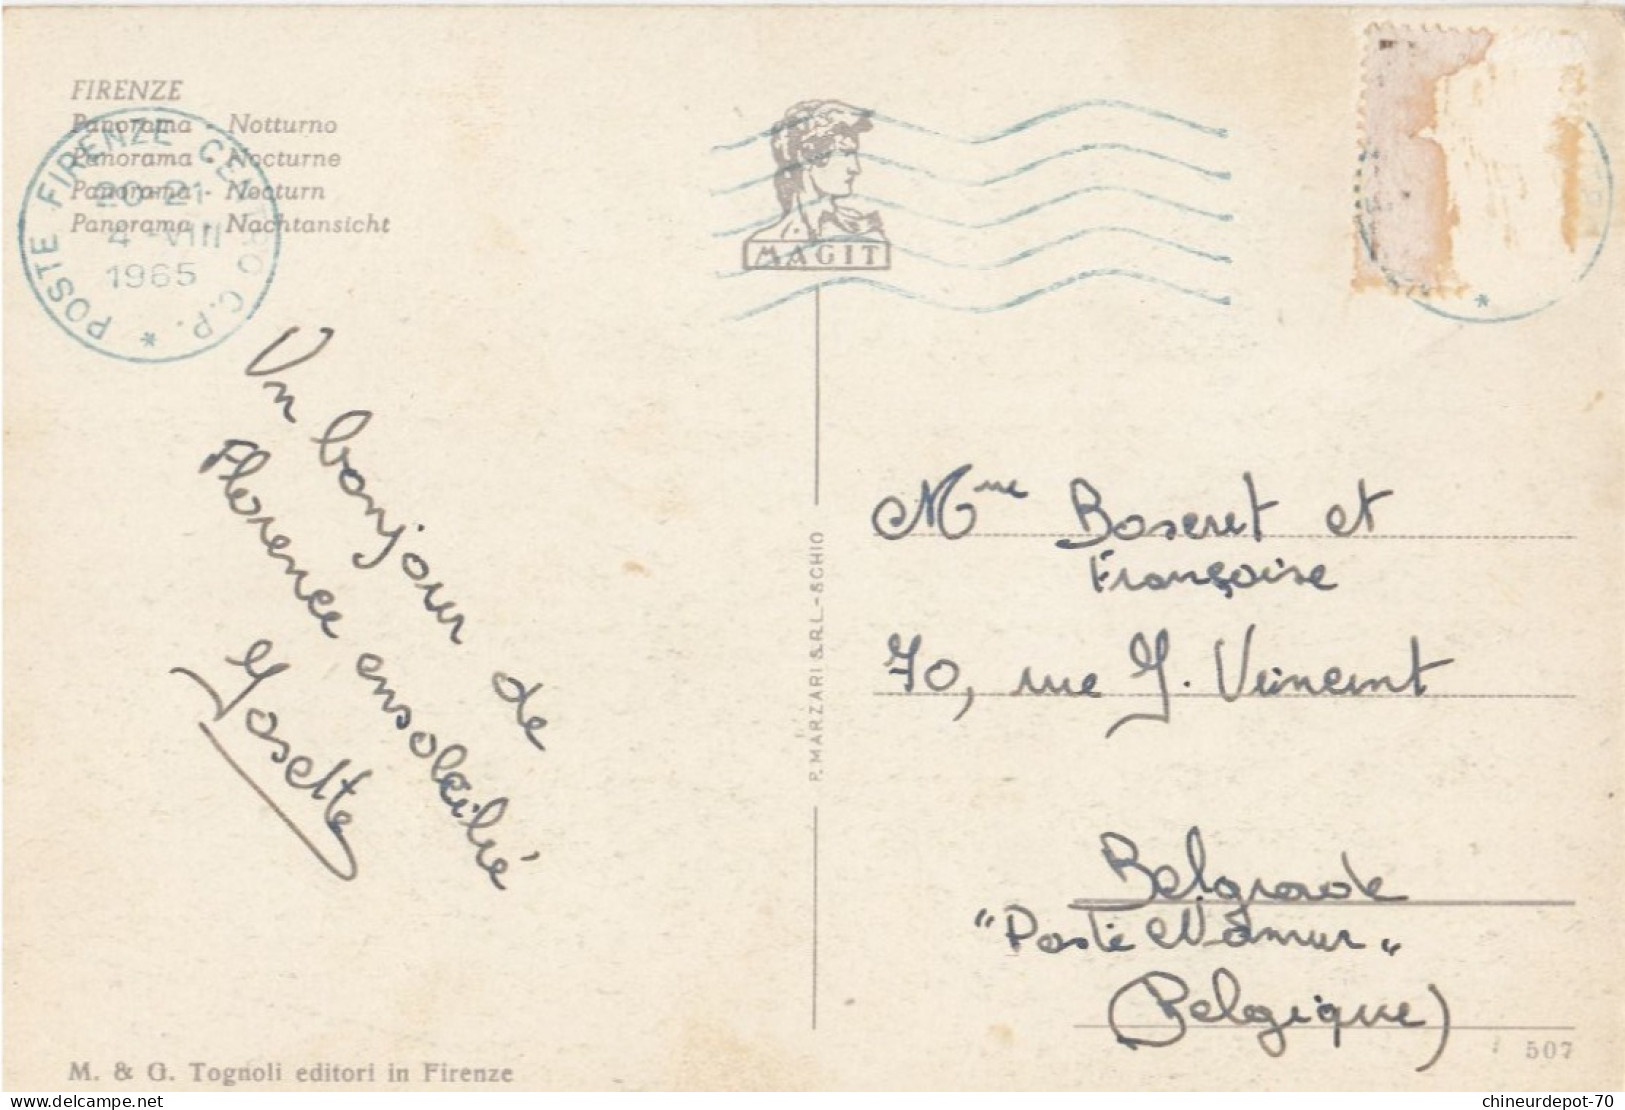 FIRENZE
Panorama - Notturno
Panorama - Nocturne
Panorama - Nocturn
Panorama - Nachtansicht
POSTE FIRENZE CENTRO C.P. *
20-21
4-VIII
1965
MAGIT
*
Un bonjour de
Florence ensoleillé
Josette
P. MARZARI S.R.L. - SCHIO
Mme Boseret et
Françoise
70, rue J. Vincent
Belgrade
"Poste Namur"
(Belgique)
M. & G. Tognoli editori in Firenze
507
chineurdepot-70